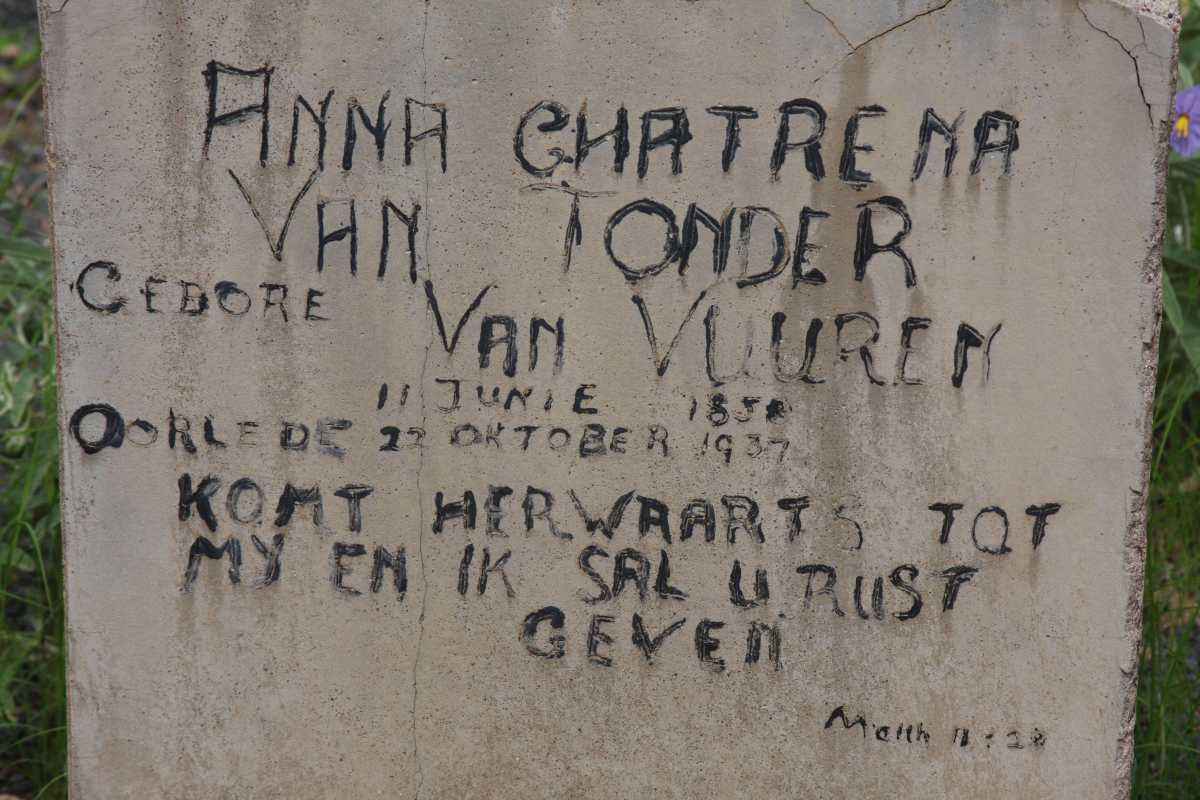 ANNA CHATRENA
VAN TONDER
GEBORE VAN VUUREN
11 JUNIE 1858
OORLEDE 22 OKTOBER 1937
KOMT HERWAARTS TOT
MY EN IK SAL U RUST
GEVEN
Matth 11:28